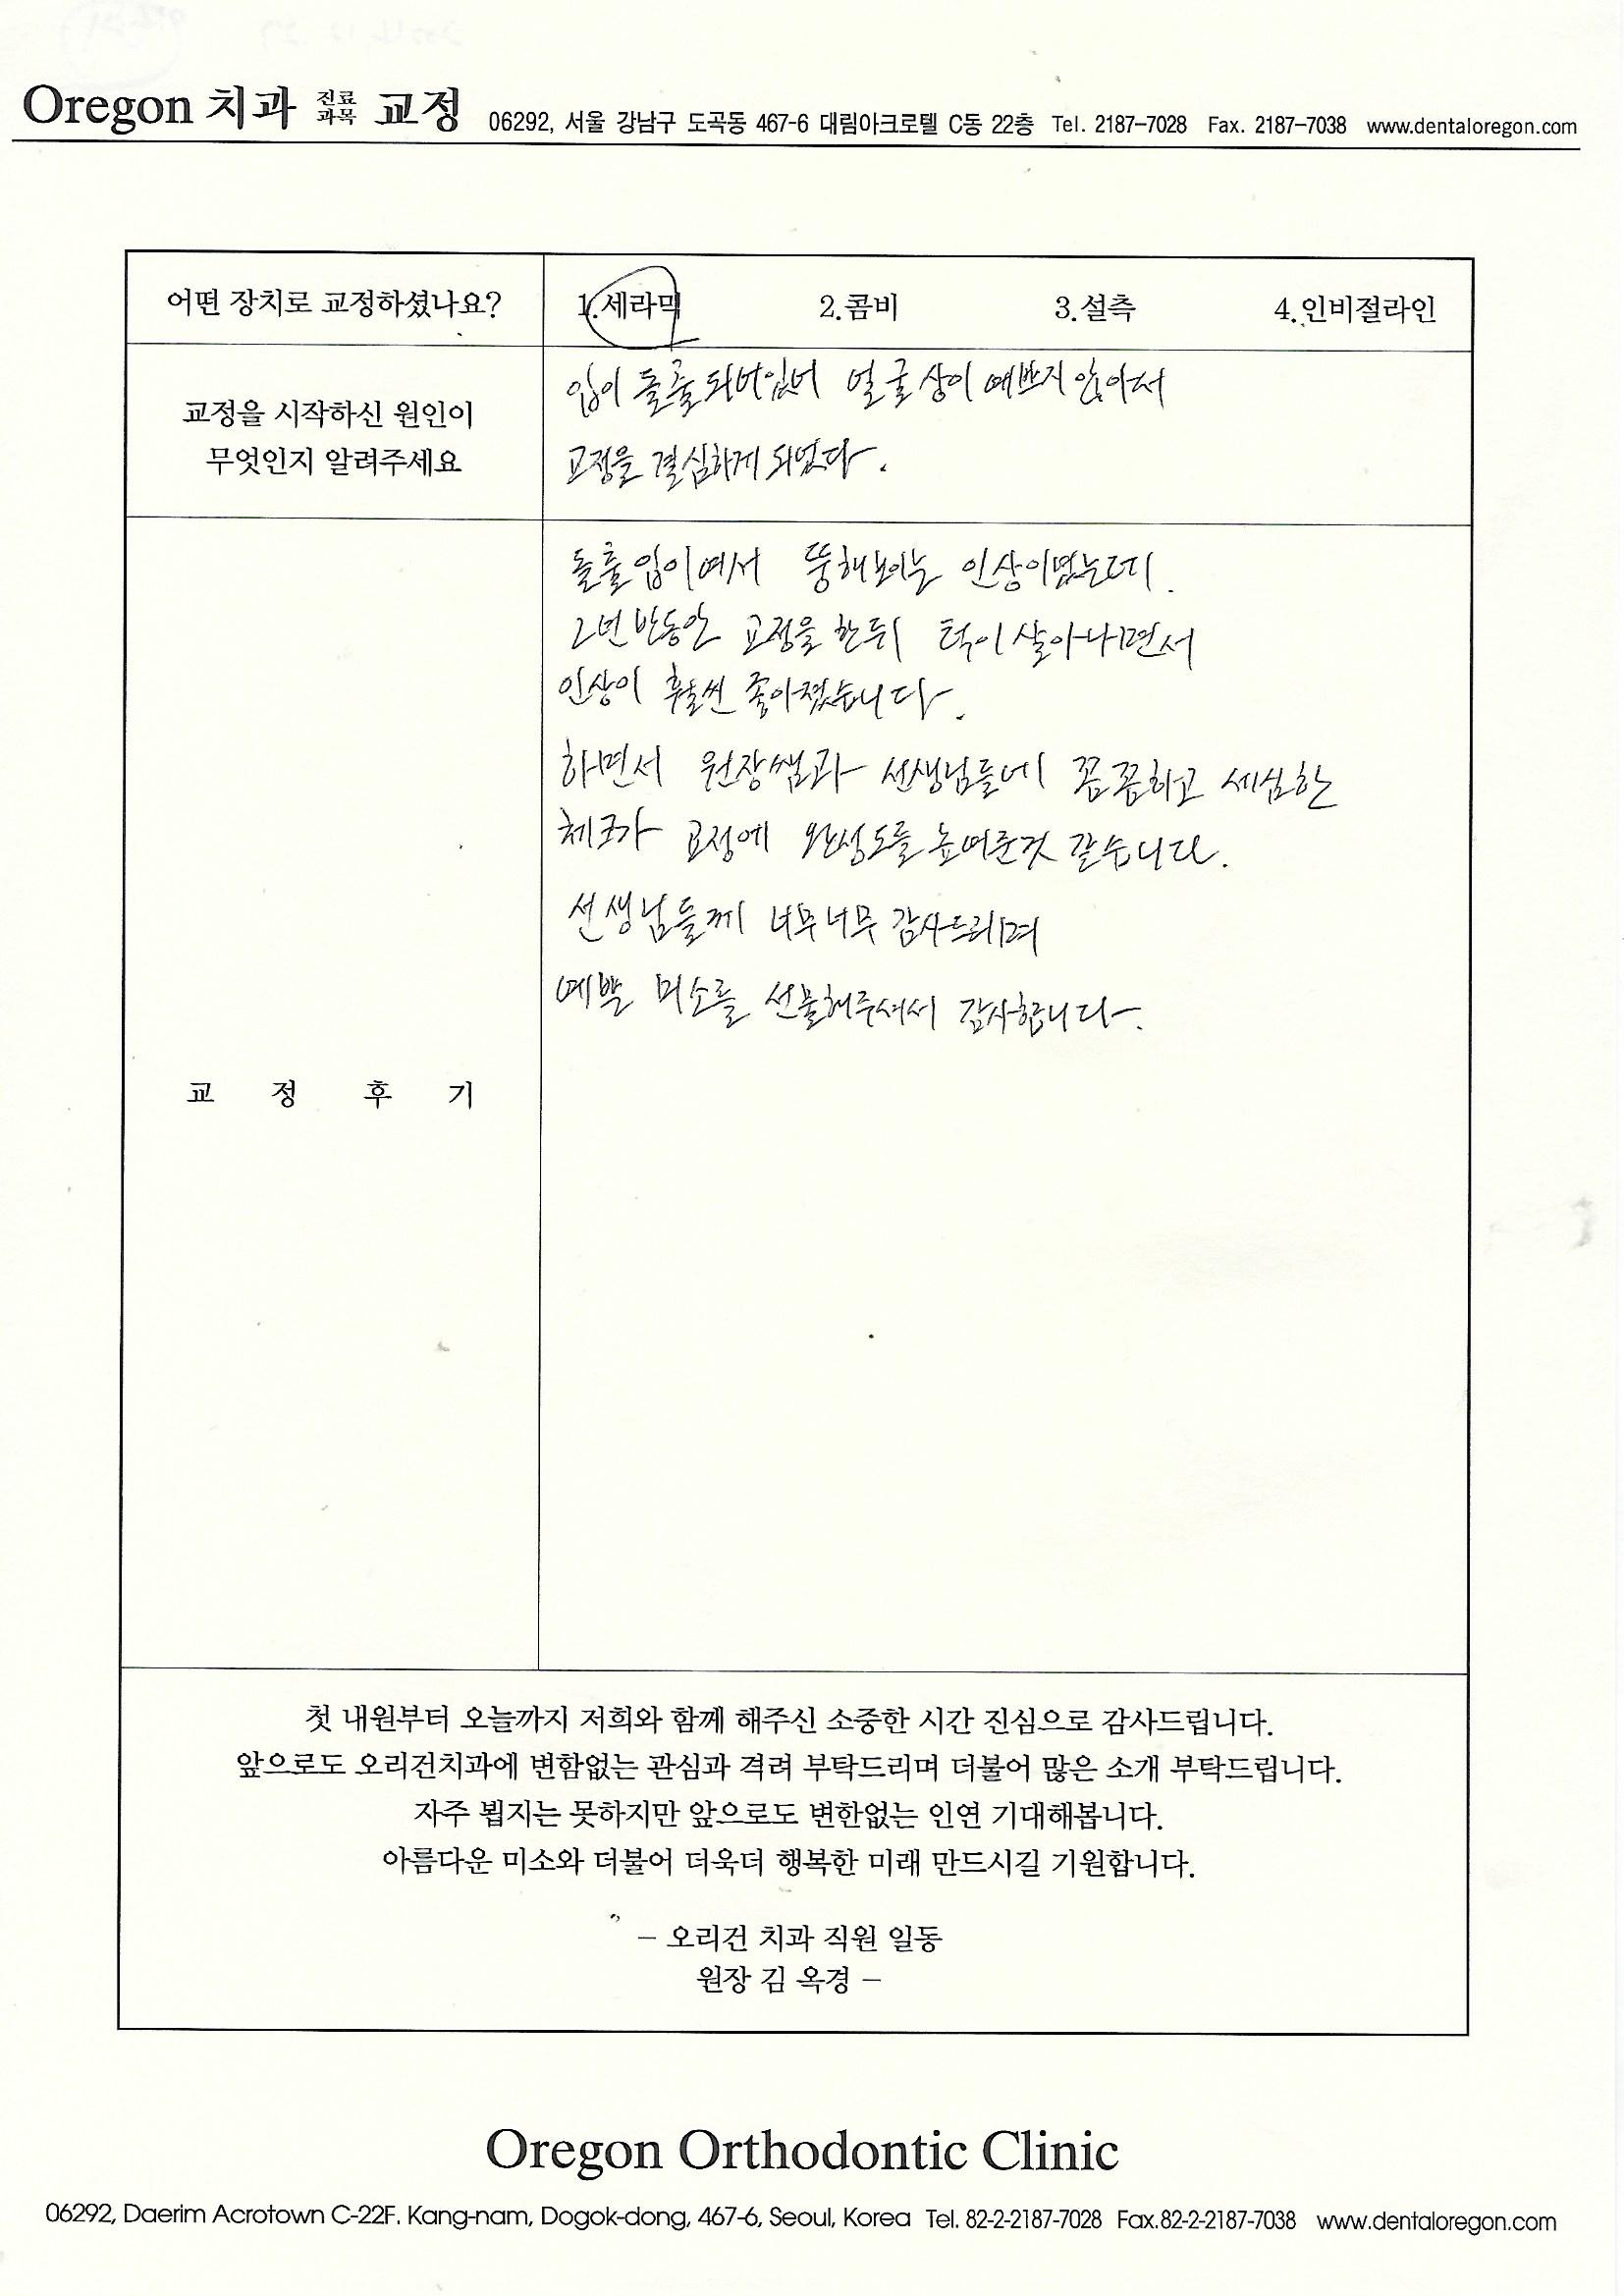 Oregon 치과 진료과목 교정 06292, 서울 강남구 도곡동 467-6 대림아크로텔 C동 22층 Tel. 2187-7028 Fax. 2187-7038 www.dentaloregon.com
어떤 장치로 교정하셨나요? 1.세라믹 2.콤비 3.설측 4.인비절라인
교정을 시작하신 원인이
무엇인지 알려주세요
입이 돌출되어있어 얼굴상이 예쁘지 않아서
교정을 결심하게 되었다.
교 정 후 기
돌출입이여서 뚱해보이는 인상이였는데.
2년 반동안 교정을 한뒤 턱이 살아나면서
인상이 훨씬 좋아졌습니다.
하면서 원장쌤과 선생님들에 꼼꼼하고 세심한
체크가 교정에 완성도를 높여준것 같습니다.
선생님들께 너무너무 감사드리며
예쁜 미소를 선물해주셔서 감사합니다.
첫 내원부터 오늘까지 저희와 함께 해주신 소중한 시간 진심으로 감사드립니다.
앞으로도 오리건치과에 변함없는 관심과 격려 부탁드리며 더불어 많은 소개 부탁드립니다.
자주 뵙지는 못하지만 앞으로도 변한없는 인연 기대해봅니다.
아름다운 미소와 더불어 더욱더 행복한 미래 만드시길 기원합니다.
– 오리건 치과 직원 일동
원장 김 옥경 –
Oregon Orthodontic Clinic
06292, Daerim Acrotown C-22F. Kang-nam, Dogok-dong, 467-6, Seoul, Korea Tel. 82-2-2187-7028 Fax.82-2-2187-7038 www.dentaloregon.com